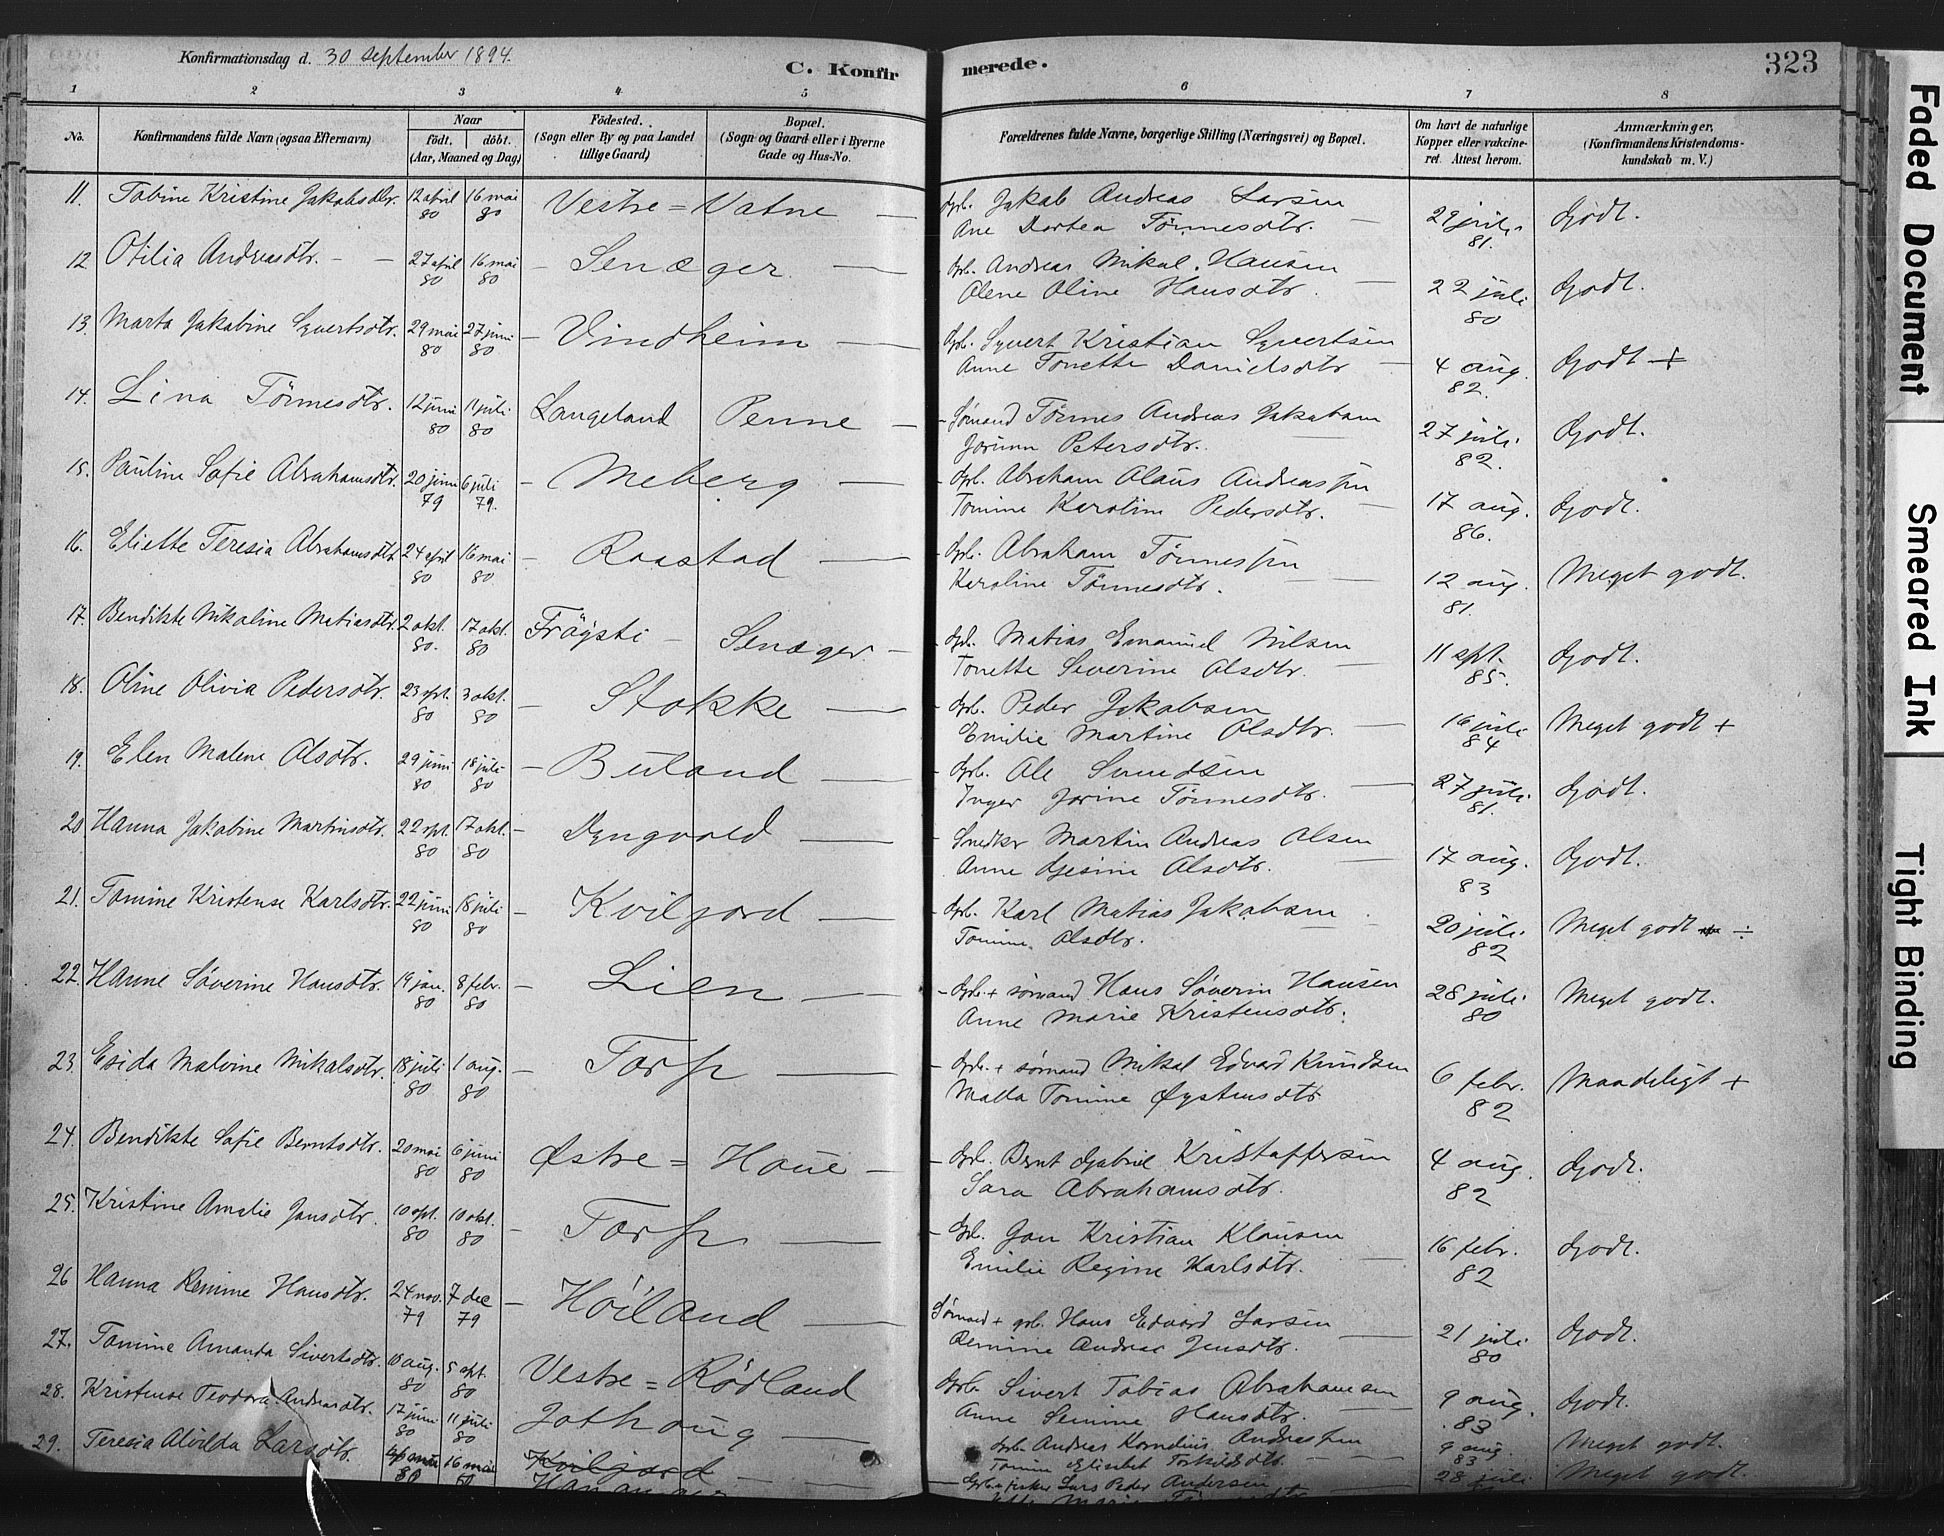 Konfirmationsdag d. 30 september 1894.
C. Konfir
merede.
323
1 2 3 4 5 6 7 8
No.
Konfirmandens fulde Navn (ogsaa Efternavn)
Naar
født. døbt.
(Aar, Maaned og Dag)
Fødested.
(Sogn eller By og paa Landet
tillige Gaard)
Bopæl.
(Sogn og Gaard eller i Byerne
Gade og Hus-No.
Forældrenes fulde Navne, borgerlige Stilling (Næringsvei) og Bopæl.
Om havt de naturlige
Kopper eller vakcine-
ret. Attest herom.
Anmærkninger,
(Konfirmandens Kristendoms-
kundskab m. V.)
11. Tobine Kristine Jakobsdtr. 12 april 80 16 mai 80 Vestre = Vatne
Gbr. Jakob Andreas Larsen
Ane Dortea Tønnesdtr.
29 juli 81. Godt.
12 Otilia Andreasdtr. 27 april 80 16 mai 80 Senæger
Gbr. Andreas Mikal Hansen
Olene Oline Hansdtr.
22 juli 80 Godt.
13. Marta Jakobine Syvertsdtr. 29 mai 80 27 juni 80 Vindheim
Gbr. Syvert Kristian Syvertsen
Anne Tonette Danielsdtr
4 aug. 82. Godt +
14. Lina Tønnesdtr. 12 juni 80 11 juli 80 Langeland Penne
Sømand Tønnes Andreas Jakobsen
Jorunn Petersdtr.
27 juli 82. Godt.
15. Pauline Sofie Abrahamsdtr. 20 juni 79 6 juli 79. Meberg
Gbr. Abraham Olaus Andreassen
Tomine Karoline Pedersdtr.
17 aug. 86. Godt.
16. Eliette Teresia Abrahamsdtr. 24 april 80 16 mai 80 Raastad
Gbr. Abraham Tønnessen
Karoline Tønnesdtr.
12 aug. 81. Meget godt.
17. Bendikte Nikoline Matiasdtr. 2 okt. 80. 17 okt. 80 Frøysti Senæger
Gbr. Matias Emanuel Nilsen
Tonette Severine Olsdtr.
11 sept. 85. Godt.
18. Oline Olivia Pedersdtr. 23 spt. 80 3 okt. 80 Stokke
Gbr. Peder Jakobsen
Emilie Martine Olsdtr.
16 juli 84 Meget godt +
19. Elen Malene Olsdtr. 29 juni 80 18 juli 80 Buland
Gbr. Ole Svendsen
Inger Jorine Tønnesdtr.
27 juli 81. Godt.
20 Hanna Jakobine Martinsdtr. 22 spt. 80 17 okt. 80 Dyngvold
Snedker Martin Andreas Olsen
Anne Gesine Olsdtr.
17 aug. 83 Godt.
21. Tomine Kristense Karlsdtr. 22 juni 80 18 juli 80 Kviljord
Gbr. Karl Matias Jakobsen
Tomine Olsdtr.
20 juli 82 Meget godt ÷
22. Hanne Søverine Hansdtr. 19 jan. 80 8 febr. 80 Lien
Gbr. + sømand Hans Søverin Hansen
Anne Marie Kristensdtr.
28 juli 80 Meget godt.
23. Esida Malvine Mikalsdtr. 18 juli 80 1 aug. 80 Torp
Gbr. + sømand Mikal Edvard Knudsen
Malla Tomine Øystensdtr
6 febr. 82 Maadeligt +
24. Bendikte Sofie Berntsdtr. 20 mai 80 6 juni 80 Østre = Haue
Gbr. Bernt Gabriel Kristoffersen
Sara Abrahamsdtr.
4 aug. 82 Godt.
25. Kristine Amalie Jansdtr. 10 spt. 80 10 okt. 80 Torp
Gbr. Jan Kristian Klausen
Emilie Regine Karlsdtr.
16 febr. 82 Godt.
26 Hanna Remine Hansdtr. 24 nov. 79 7 dec 79 Høiland
Sømand + gbr. Hans Edvard Larsen
Remine Andrea Jensdtr.
21 juli 80 Godt.
27. Tomine Amanda Sivertsdtr. 10 aug. 80 5 spt. 80 Vestre = Rødland
Gbr. Sivert Tobias Abrahamsen
Anne Semine Hansdtr.
9 aug. 83 Godt.
28. Kristense Teodora Andreasdtr. 17 juni 80 11 juli 80 Jothaug
Gbr. Andreas Kornelius Andreassen
Tomine Elisabet Torkildsdtr.
9 aug. 83 Meget godt.
29. Teresia Alvilda Larsdtr. 80 16 mai 80 Kviljord
Gbr. + fisker Lars Peder Andersen
28 juli Meget godt.
Faded Document
Smeared Ink
Tight Binding